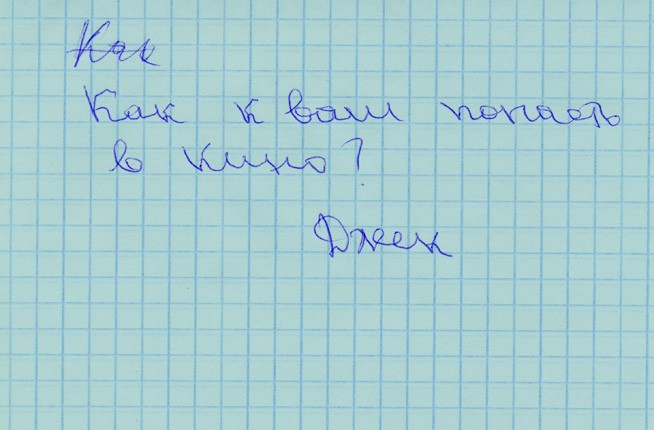 Как
Как к вам попасть
в кино?
Джек